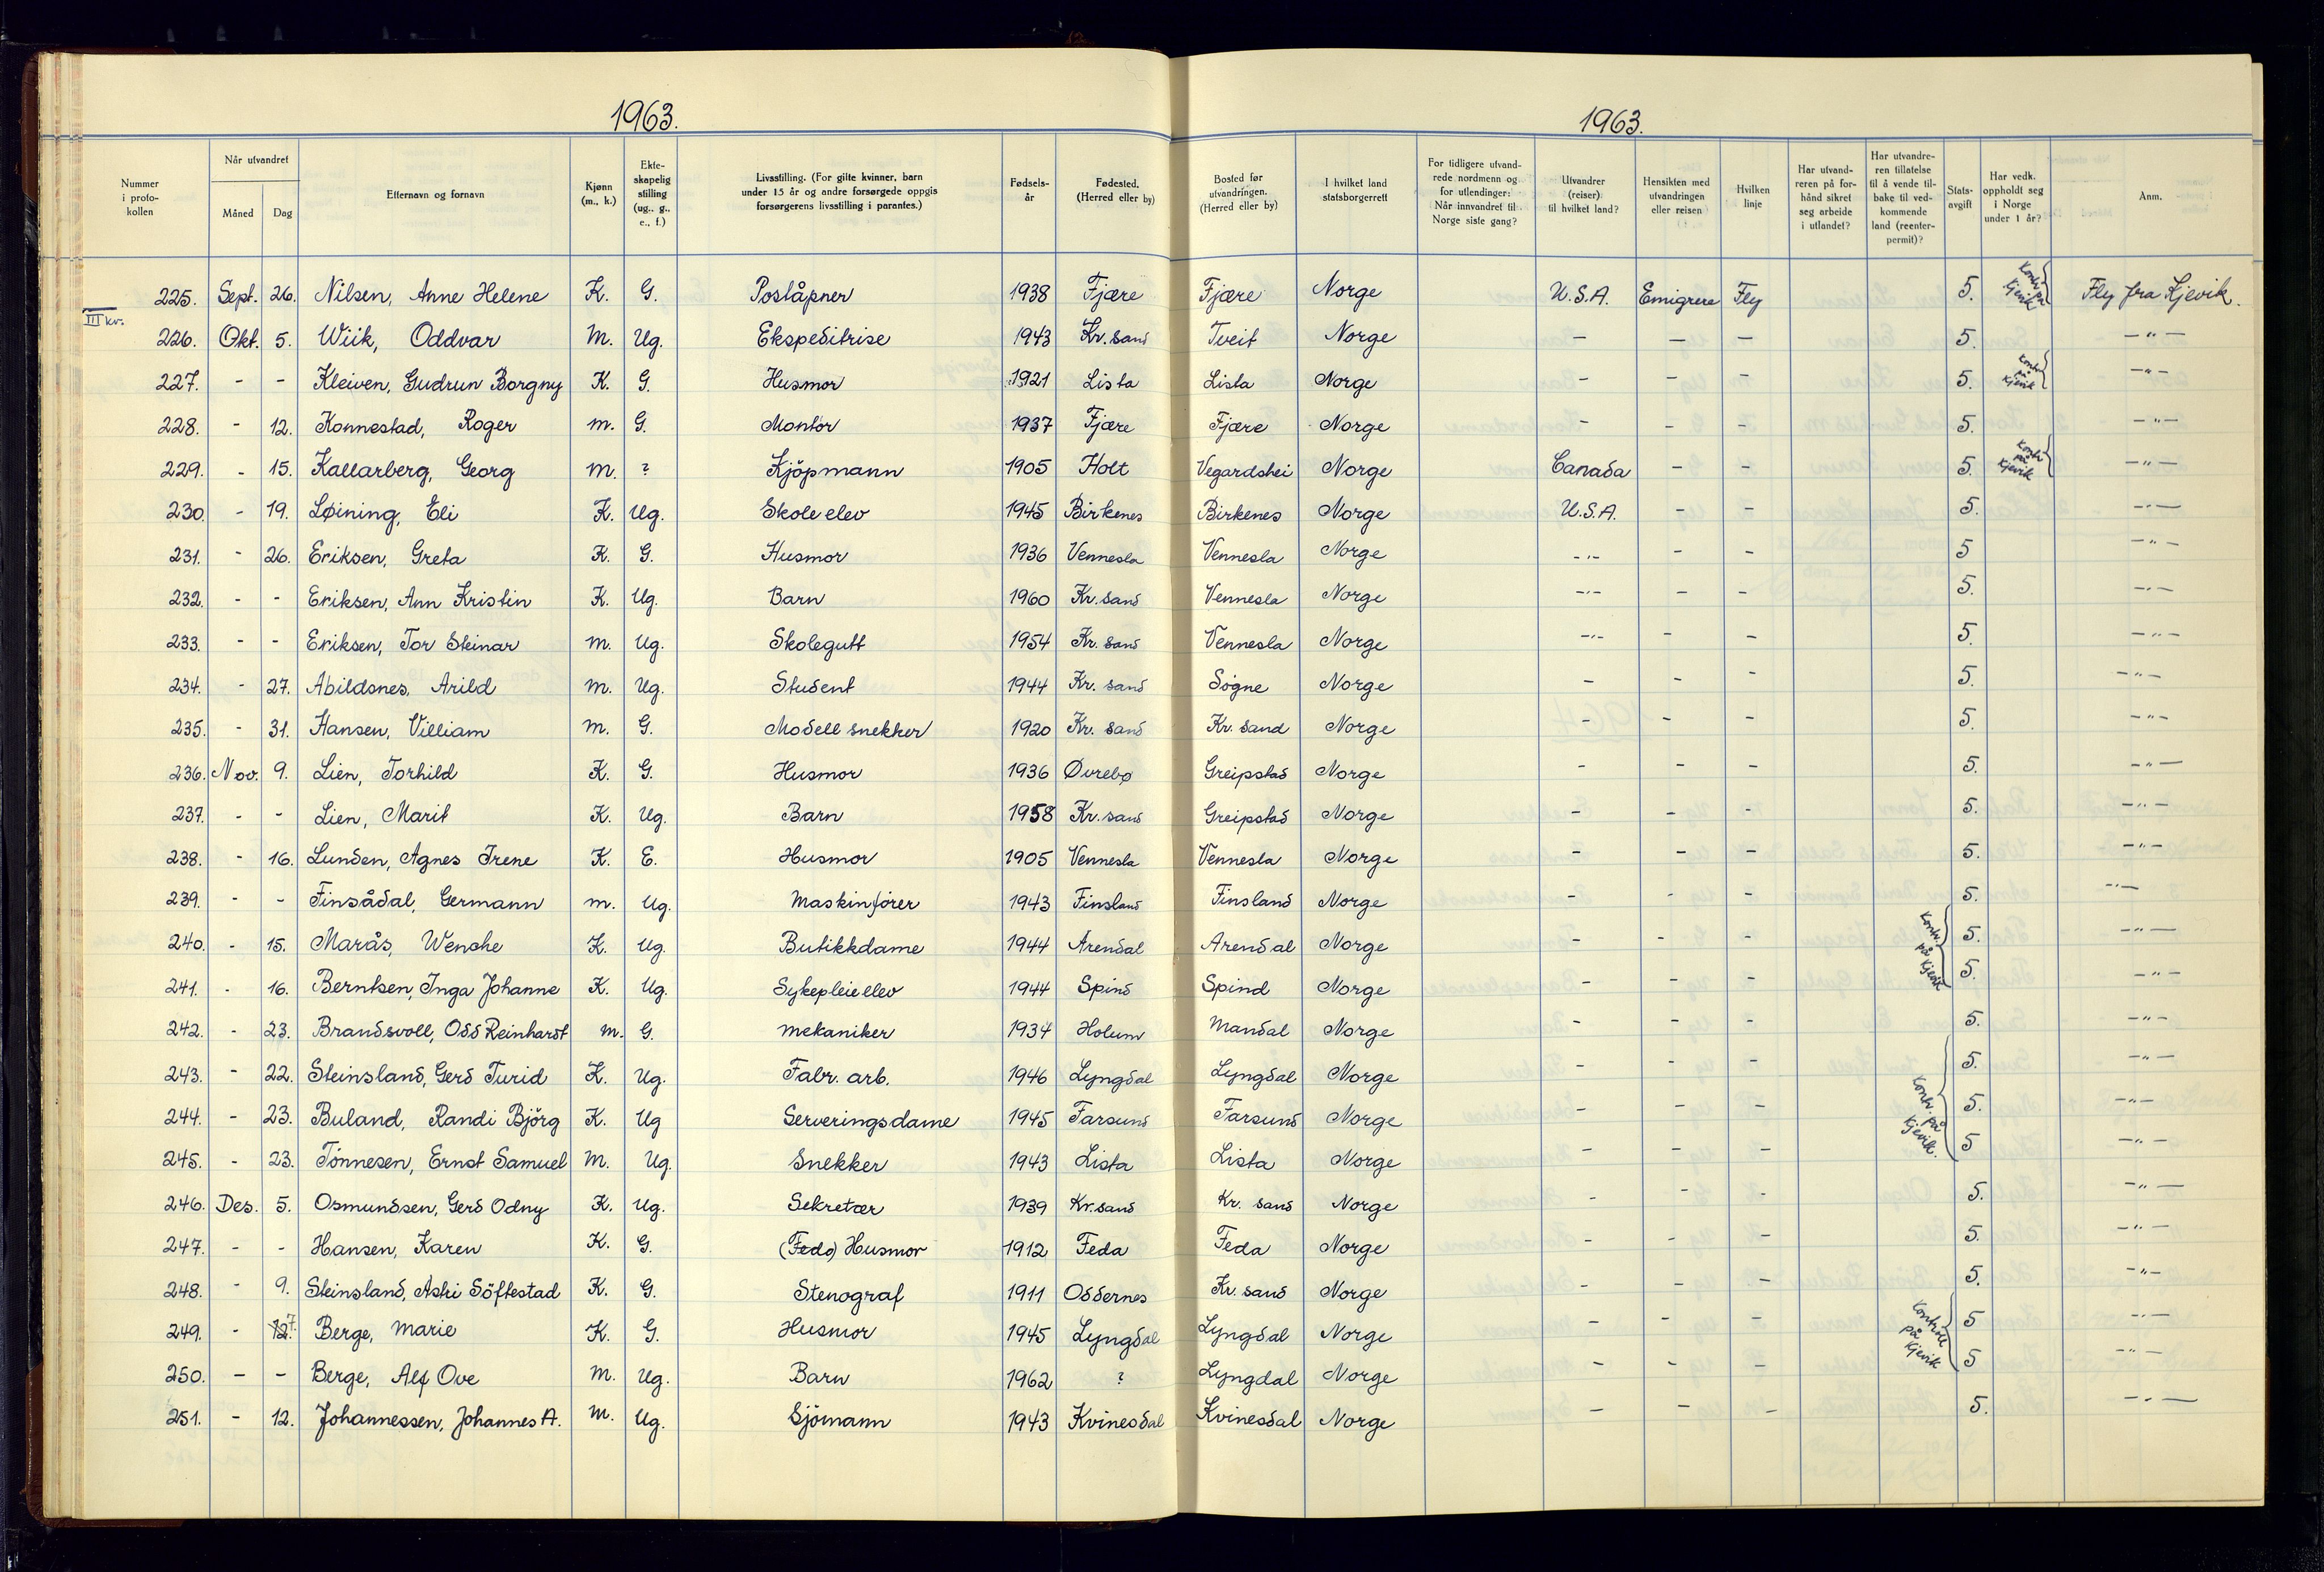 1963.
1963.
Nummer i proto-kollen | Når utvandret Måned Dag | Etternavn og fornavn | Kjønn (m., k.) | Ekte-skapelig stilling (ug., g., e., f.) | Livsstilling. (For gifte kvinner, barn under 15 år og andre forsørgede oppgis forsørgerens livsstilling i parantes.) | Fødsels-år | Fødested. (Herred eller by) | Bosted før utvandringen. (Herred eller by) | I hvilket land statsborgerrett | For tidligere utvand-rede nordmenn og for utlendinger: Når innvandret til Norge siste gang? | Utvandrer (reiser) til hvilket land? | Hensikten med utvandringen eller reisen | Hvilken linje | Har utvand-reren på for-hånd sikret seg arbeide i utlandet? | Har utvandre-ren tillatelse til å vende til-bake til ved-kommende land (reenter-permit)? | Stats-avgift | Har vedk. oppholdt seg i Norge under 1 år? | Anm.
225. Sept. 26. Nilsen, Anne Helene K. G. Poståpner 1938 Fjære Fjære Norge U.S.A. Emigrere Fly 5. Kontr. på Kjevik Fly fra Kjevik.
III kv.
226. Okt. 5. Wiik, Oddvar M. Ug. Ekspeditrise 1943 Kr. sand Tveit Norge — — — 5. —"—
227. - - Kleiven, Gudrun Borgny K. G. Husmor 1921 Lista Lista Norge - - - 5. Kontr. på Kjevik —"—
228. - 12. Konnestad, Roger m. G. Montör 1937 Fjære Fjære Norge - - - 5. —"—
229. - 15. Kallarberg, Georg m. ? Kjöpmann 1905 Holt Vegardshei Norge Canada - - 5. Kontr. på Kjevik —"—
230. - 19. Løining, Eli K. Ug. Skole elev 1945 Birkenes Birkenes Norge U.S.A. - - 5. —"—
231. - 26. Eriksen, Greta K. G. Husmor 1936 Vennesla Vennesla Norge -"- - - 5 —"—
232. - - Eriksen, Ann Kristin K. Ug. Barn 1960 Kr. sand Vennesla Norge -"- - - 5. —"—
233. - - Eriksen, Tor Steinar m. Ug. Skolegutt 1954 Kr. sand Vennesla Norge -"- - - 5. —"—
234. - 27. Abildsnes, Arild m. Ug. Student 1944 Kr. sand Sögne Norge - - - 5. —"—
235. - 31. Hansen, Villiam m. G. Modell snekker 1920 Kr. sand Kr. sand Norge - - - 5. —"—
236. Nov. 9. Lien, Torhild K. G. Husmor 1936 Øvrebø Greipstad Norge - - - 5. —"—
237. - - Lien, Marit K. Ug. Barn 1958 Kr. sand Greipstad Norge - - - 5. —"—
238. - 16. Lunden, Agnes Irene K. E. Husmor 1905 Vennesla Vennesla Norge - - - 5. —"—
239. - - Finsådal, Germann m. Ug. Maskinförer 1943 Finsland Finsland Norge - - - 5. —"—
240. - 15. Marås, Wenche K. Ug. Butikkdame 1944 Arendal Arendal Norge - - - Kontr. på Kjevik 5. —"—
241. - 16. Berntsen, Inga Johanne K. Ug. Sykepleie elev 1944 Spind Spind Norge - - - 5. —"—
242. - 23. Brandsvoll, Odd Reinhardt m. G. mekaniker 1934 Holum Mandal Norge - - - 5. —"—
243. - 22. Steinsland, Gerd Turid K. Ug. Fabr. arb. 1946 Lyngdal Lyngdal Norge - - - 5. —"—
244. - 23. Buland, Randi Björg K. Ug Serveringsdame 1945 Farsund Farsund Norge - - - Kontr. på Kjevik. 5. —"—
245. - 23. Tönnesen, Ernst Samuel M. Ug. Snekker 1943 Lista Lista Norge - - - 5 —"—
246. Des. 5. Osmundsen, Gerd Odny K. Ug. Sekretær 1939 Kr. sand Kr. sand Norge - - - 5. —"—
247. - - Hansen, Karen K. G. (Feda) Husmor 1912 Feda Feda Norge - - - 5. —"—
248. - 9. Steinsland, Astri Söftestad K. G. Stenograf 1911 Oddernes Kr. sand Norge - - - 5. —"—
249. - 7. Berge, Marie K. G. Husmor 1945 Lyngdal Lyngdal Norge - - - Kontroll på Kjevik 5 —"—
250. - - Berge, Alf Ove M. Ug. Barn 1962 ? Lyngdal Norge - - - 5 —"—
251. - 12. Johannessen, Johannes A. M. Ug. Sjömann 1943 Kvinesdal Kvinesdal Norge - - - 5. —"—